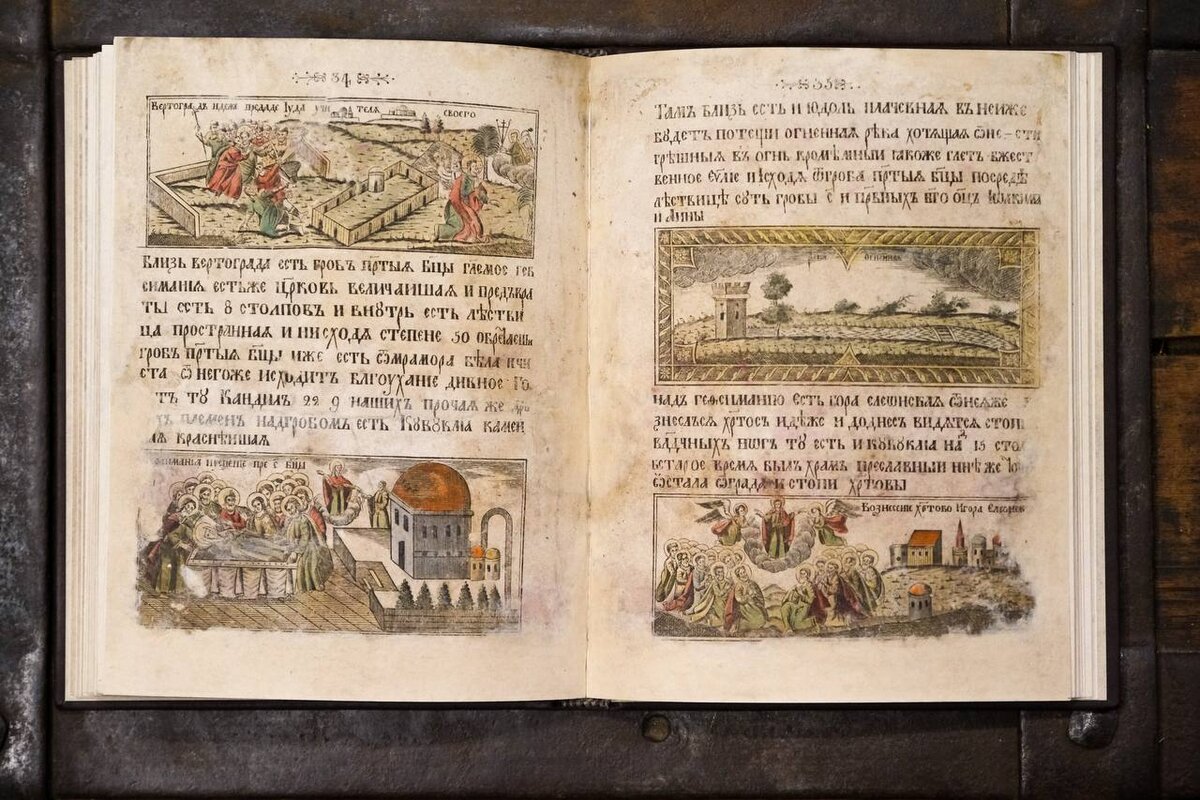 34
Вертоградъ идеже предаде Іуда учителя своего
Близь вертограда есть гробъ пр҃тыя бц҃ы гл҃емое геѳ
симанія есть же цр҃ковь величаишая и предъвра
ты есть 8 столповъ и внутрь есть лѣстви
ца пространная и нисходя степене 50 обрѣтаеши
гробъ пр҃тыя бц҃ы иже есть ѿ мрамора бѣла и чи
ста ѿ негоже исходитъ благоуханіе дивное
ту кандилъ 22 9 нашихъ прочая же
племенъ надгробомъ есть кувуклиа камен
ая краснѣишая
успеніе пре с бц҃ы
35
Тамъ близь есть и юдоль плачевная въ неиже
будетъ потещи огненная рѣка хотящая
грѣшныя въ огнь кромѣшныи якоже гл҃етъ бжест
венное еѵ҃ліе нисходя ѿ гроба пр҃тыя бц҃ы посредѣ
лѣствицѣ суть гробы с и првныхъ его оц҃ъ Іѡакима
и Анны
рѣка огненная
надъ геѳсиманию есть гора елеонская ѿ неяже
знеслъся хр҃тосъ идѣже и до днесь видятся стопи
влдчныхъ ногъ ту есть и кувуклиа на 15 сто
встарое время былъ храмъ преславныи нн҃ѣ же
ѡстала ѡграда и стопи хр҃товы
Вознесеніе хр҃тово Игора Елеонск